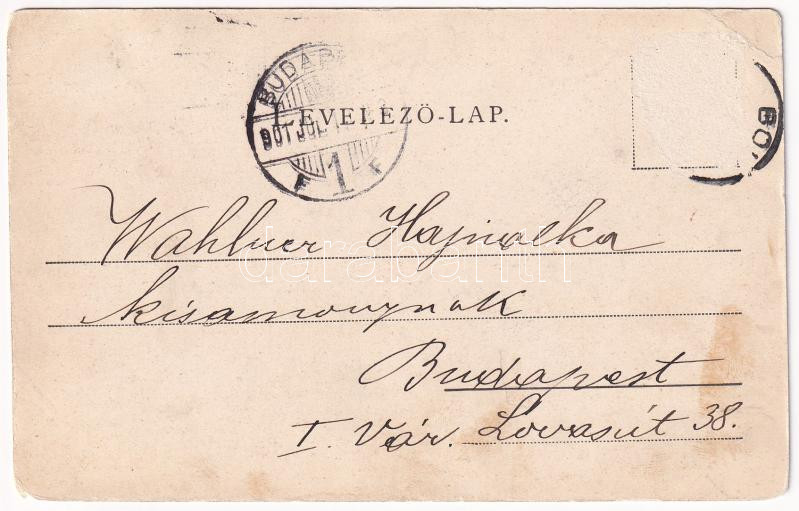 BUDAPE
LEVELEZÖ-LAP.
901 JUL
F 1 F
BO
Wahlner Hajnalka
kisasszonynak
Budapest
I. Vár. Lovasút 38.
darabanth